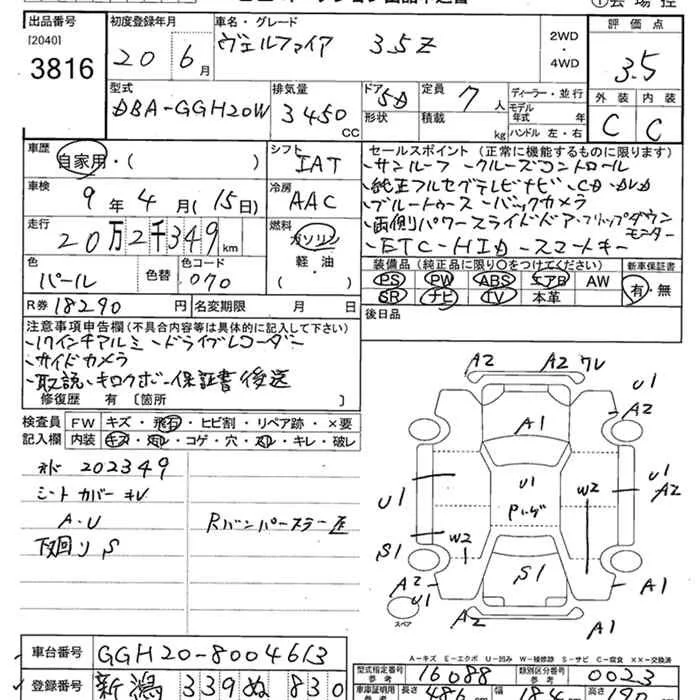 出品番号 初度登録年月 車名・グレード 評価点
[2040]
3816 20 6月 ヴェルファイア 3.5Z 2WD・4WD 3.5
型式 排気量 ドア 定員 ディーラー・並行 外装 内装
DBA-GGH20W 3450 CC 5D 形状 7人 積載 kg モデル年式 年 ハンドル 左・右 C C
車歴 自家用・( ) シフト IAT セールスポイント (正常に機能するものに限ります)
・サンルーフ・クルーズコントロール
車検 9年 4月 (15日) 冷房 AAC ・純正フルセグテレビナビ・CD・DVD
・ブルートゥース・バックカメラ
走行 20万2千349km 燃料 ガソリン 軽・油 ( ) ・両側パワースライドドア・フリップダウンモニター
・ETC・HID・スマートキー
色 パール 色替 色コード 070 装備品 (純正品に限り○をつけてください) 新車保証書
PS PW ABS エアB AW 有・無
SR ナビ TV 本革
R券 18290円 名変期限 月 日 後日品
注意事項申告欄(不具合内容等は具体的に記入して下さい)
・17インチアルミ・ドライブレコーダー
・サイドカメラ
・取説・キロクボ・保証書後送
修復歴 有 〔箇所
検査員記入欄 FW キズ・飛石・ヒビ割・リペア跡・×要
内装 キズ・汚レ・コゲ・穴・スレ・キレ・破レ
202349
シートカバー
A・U Rバンパーステー
下回り S
A2 A2 ワレ
U1 A2
A1
U1
U1 W2 U1 A2
S1 W2
S1
A2 U1 A1
スペア A2 A1
A-キズ E-エクボ U-凹み W-補修跡 S-サビ C-腐食 ×××-交換済
車台番号 GGH20-8004613 型式指定番号 参考 16088 類別区分番号 参考 0023
登録番号 新潟 339 ぬ 830 車庫証明用 参考 長さ 486 幅 184 高さ 190